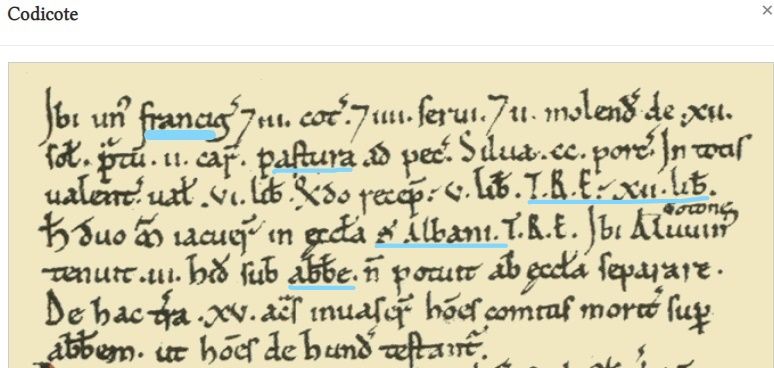 Codicote
×
Ibi un᷒ francig᷒ ⁊ .iii. cot᷒. ⁊ .iiii. serui. ⁊ .ii. molend̄ de .xx. 
sol̄. p̄tū .ii. car̄. pastura ad pec̄. Silua .cc. porc̄. In totis
ualent̄. ual̄ .vi. lib̄. Q̄do recep̄: .v. lib̄. T.R.E: .xii. lib̄.
H̄ duo m̄ iacuer̄ in eccl̄a S᷒ Albani. T.R.E. Ibi Aluuin᷒ gotone
tenuit .iii. hid̄ sub abb̄e. n̄ potuit ab eccl̄a separare.
De hac tr̄a .xv. ac̄s inuaser̄ hōes comitis morit̄ sup̄
abb̄em. ut hōes de hund̄ testant̄.